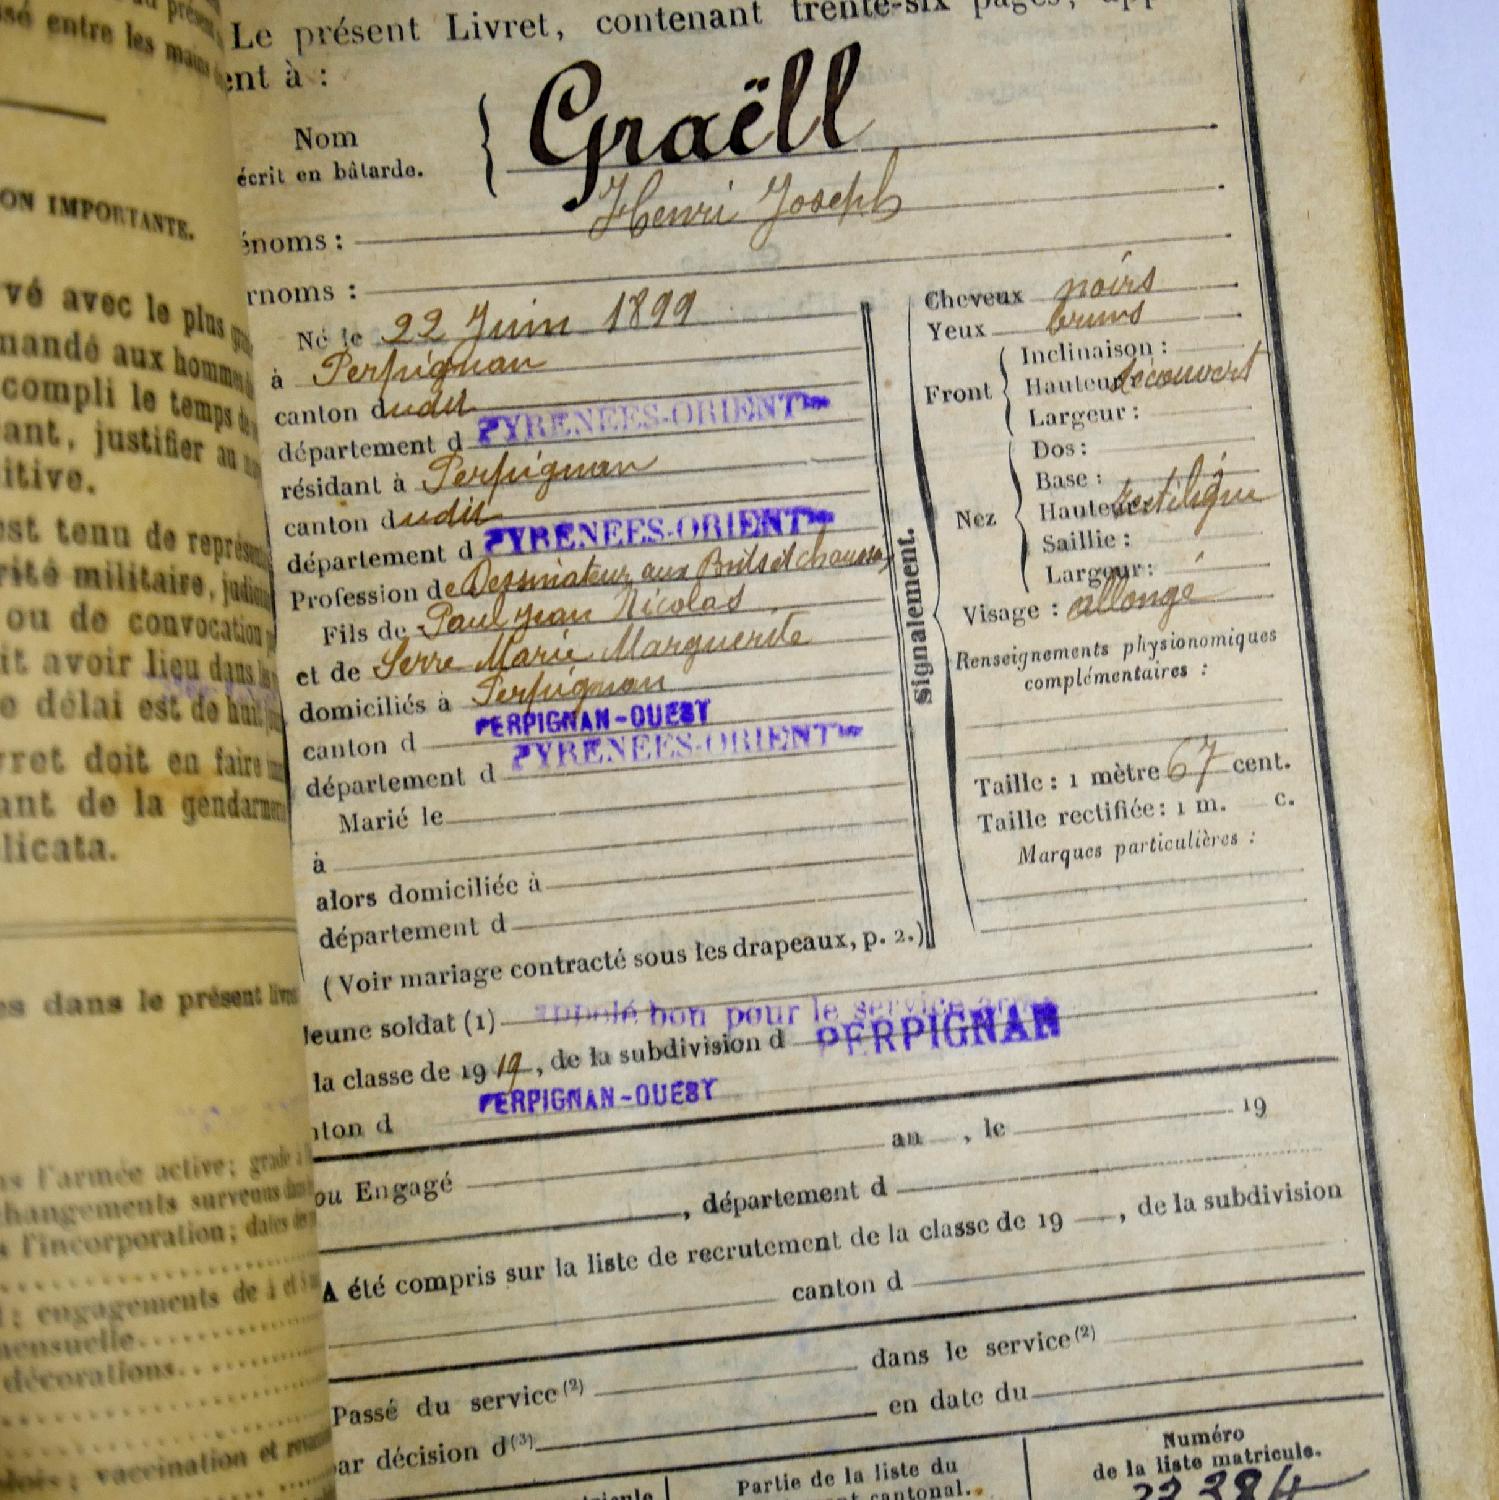 Le présent Livret, contenant trente-six pages,
ent à :
Nom
écrit en bâtarde.
Graëll
énoms : Henri Joseph
rnoms :
Né le 22 Juin 1899
à Perpignan
canton dudit
département d PYRENEES-ORIENT
résidant à Perpignan
canton dudit
département d PYRENEES-ORIENT
Profession de Dessinateur aux Ponts et chaussées
Fils de Paul Jean Nicolas
et de Serre Marie Marguerite
domiciliés à Perpignan
canton d PERPIGNAN-OUEST
département d PYRENEES-ORIENT
Marié le
à
alors domiciliée à
département d
(Voir mariage contracté sous les drapeaux, p. 2.)
Signalement.
Cheveux noirs
Yeux bruns
Front
Inclinaison :
Hauteur: découvert
Largeur :
Nez
Dos :
Base :
Hauteur: rectiligne
Saillie :
Largeur :
Visage : allongé
Renseignements physionomiques
complémentaires :
Taille : 1 mètre 67 cent.
Taille rectifiée : 1 m. c.
Marques particulières :
Jeune soldat (1) appelé bon pour le service armé
la classe de 1919, de la subdivision d PERPIGNAN
nton d PERPIGNAN-OUEST
ou Engagé an , le 19
, département d
A été compris sur la liste de recrutement de la classe de 19 , de la subdivision
canton d
Passé du service (2) dans le service (2)
par décision d(3) en date du
Partie de la liste du
cantonal.
Numéro
de la liste matricule.
ON IMPORTANTE.
sé entre les mains
vé avec le plus
mandé aux hommes
compli le temps de
ant, justifier au
itive.
est tenu de représ
rité militaire, judici
ou de convocation
it avoir lieu dans les
e délai est de huit
vret doit en faire
ant de la gendarm
licata.
es dans le présent livre
ns l'armée active; grade
changements survenus dans
s l'incorporation; dates des
: engagements de
mensuelle
décorations
vaccination et